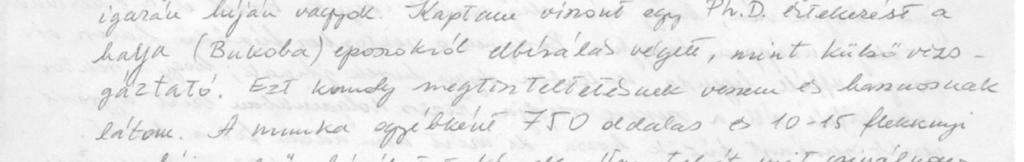 igazán híján vagyok. Kaptam viszont egy Ph.D. értekezést a
haya (Bukoba) eposzokról elbírálás végett, mint külső vizs-
gáztató. Ezt komoly megtiszteltetésnek veszem és hasznosnak
látom. A munka egyébként 750 oldalas és 10-15 flekknyi